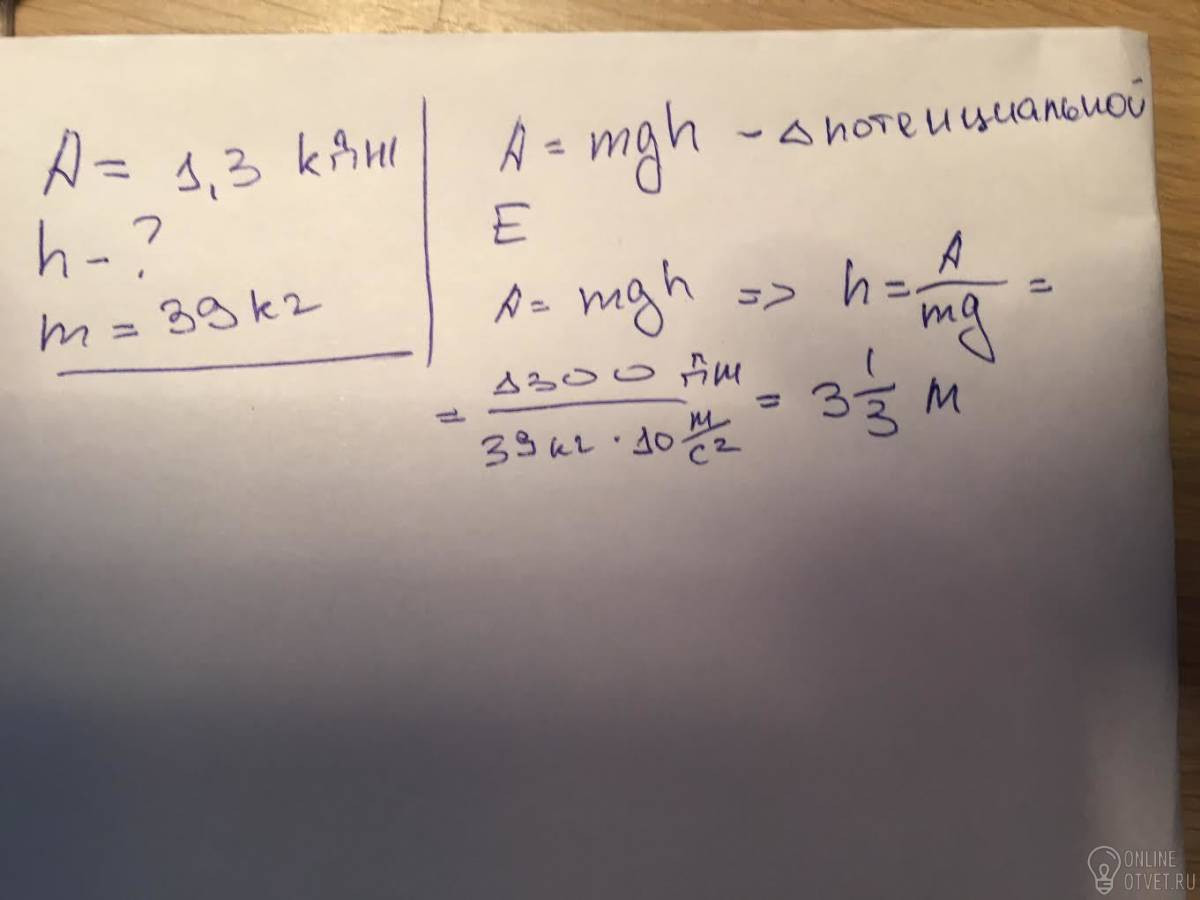 A = 1,3 кДж
h - ?
m = 39 кг
A = mgh - Δ потенциальной
E
A = mgh => h = A/mg =
= 1300 Дж / 39 кг · 10 м/с² = 3 1/3 м
ONLINE
OTVET.RU